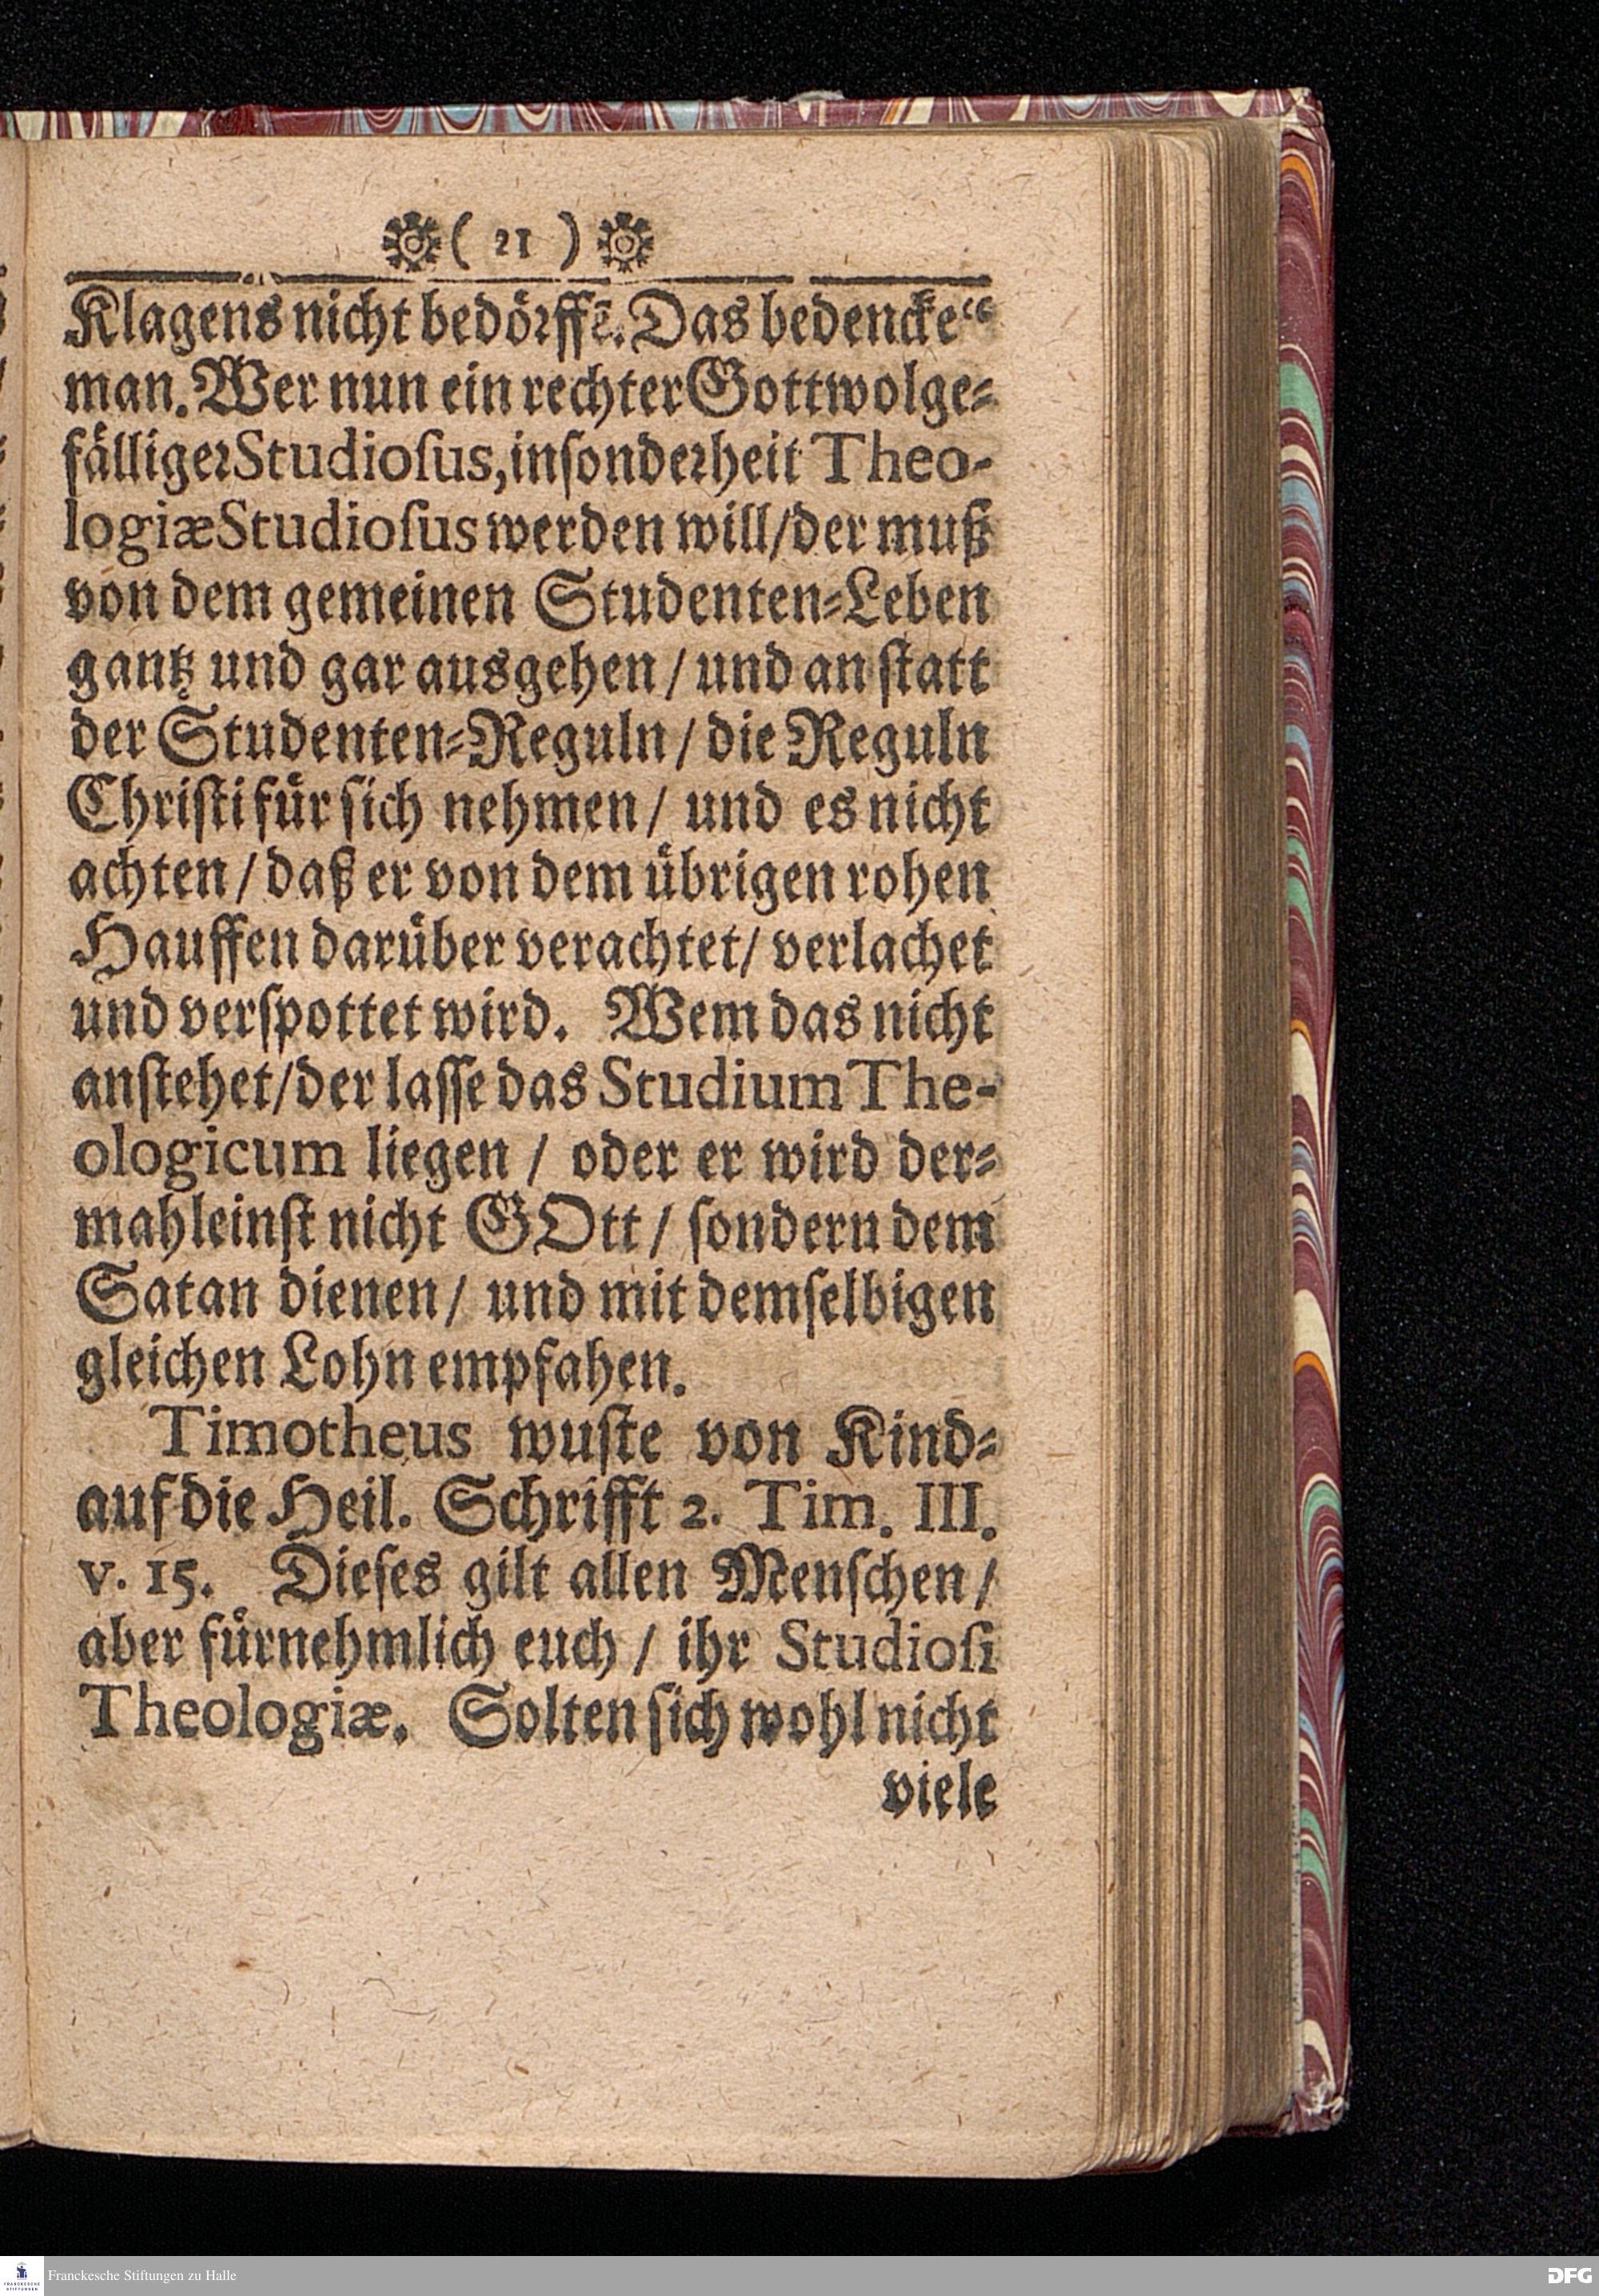 ( 21 )
Klagens nicht bedörffẽ. Das bedencke“
man. Wer nun ein rechter Gottwolge⸗
fälliger Studioſus, inſonderheit Theo-
logiæ Studioſus werden will / der muß
von dem gemeinen Studenten⸗Leben
gantz und gar ausgehen / und an ſtatt
der Studenten⸗Reguln / die Reguln
Chriſti für ſich nehmen / und es nicht
achten / daß er von dem übrigen rohen
Hauffen darüber verachtet / verlachet
und verſpottet wird. Wem das nicht
anſtehet / der laſſe das Studium The-
ologicum liegen / oder er wird der⸗
mahleinſt nicht GOtt / ſondern dem
Satan dienen / und mit demſelbigen
gleichen Lohn empfahen.
Timotheus wuſte von Kind⸗
auf die Heil. Schrifft 2. Tim. III.
v. 15. Dieſes gilt allen Menſchen /
aber fürnehmlich euch / ihr Studioſi
Theologiæ. Solten ſich wohl nicht
viele
FRANCKESCHE STIFTUNGEN
Franckesche Stiftungen zu Halle
DFG